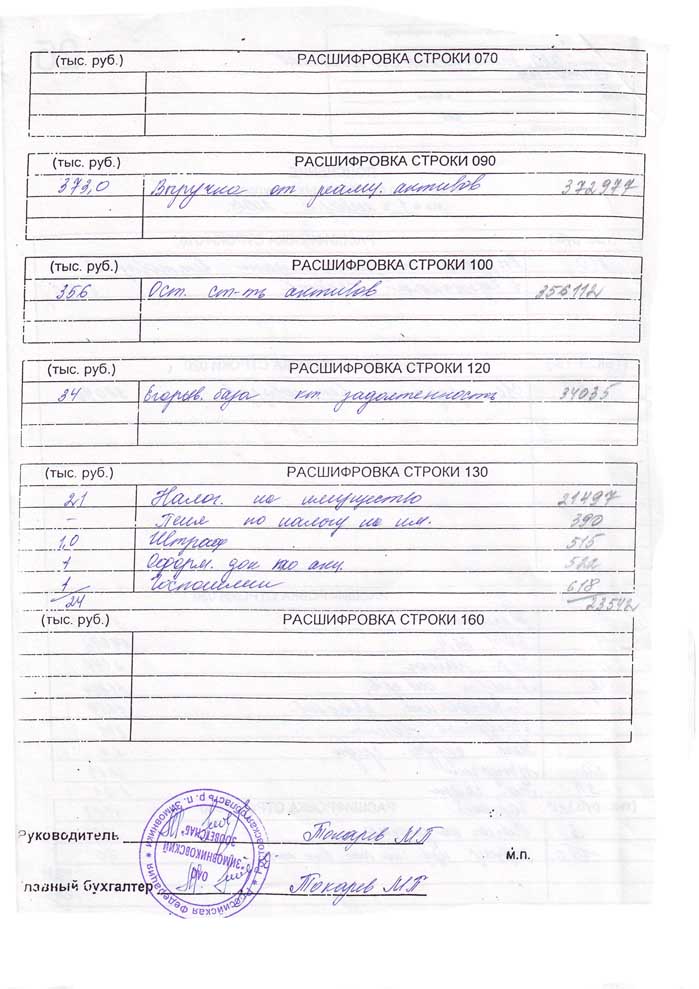 (тыс. руб.) РАСШИФРОВКА СТРОКИ 070
(тыс. руб.) РАСШИФРОВКА СТРОКИ 090
373,0 Выручка от реализ. активов 372977
(тыс. руб.) РАСШИФРОВКА СТРОКИ 100
356 Ост. ст-ть активов 356112
(тыс. руб.) РАСШИФРОВКА СТРОКИ 120
34 Егорлык. база кт задолженность 34035
(тыс. руб.) РАСШИФРОВКА СТРОКИ 130
21 Налог. на имущество 21497
- Пеня по налогу на им. 390
1,0 Штраф 515
1 Оформ. док по акц. 522
1 Госпошлин 618
24 23542
(тыс. руб.) РАСШИФРОВКА СТРОКИ 160
Руководитель Токарев МП
м.п.
Главный бухгалтер Токарев МП
Российская Федерация * Ростовская область р. п. Зимовники *
ОАО
"ЗИМОВНИКОВСКИЙ
ЗООВЕТСНАБ"